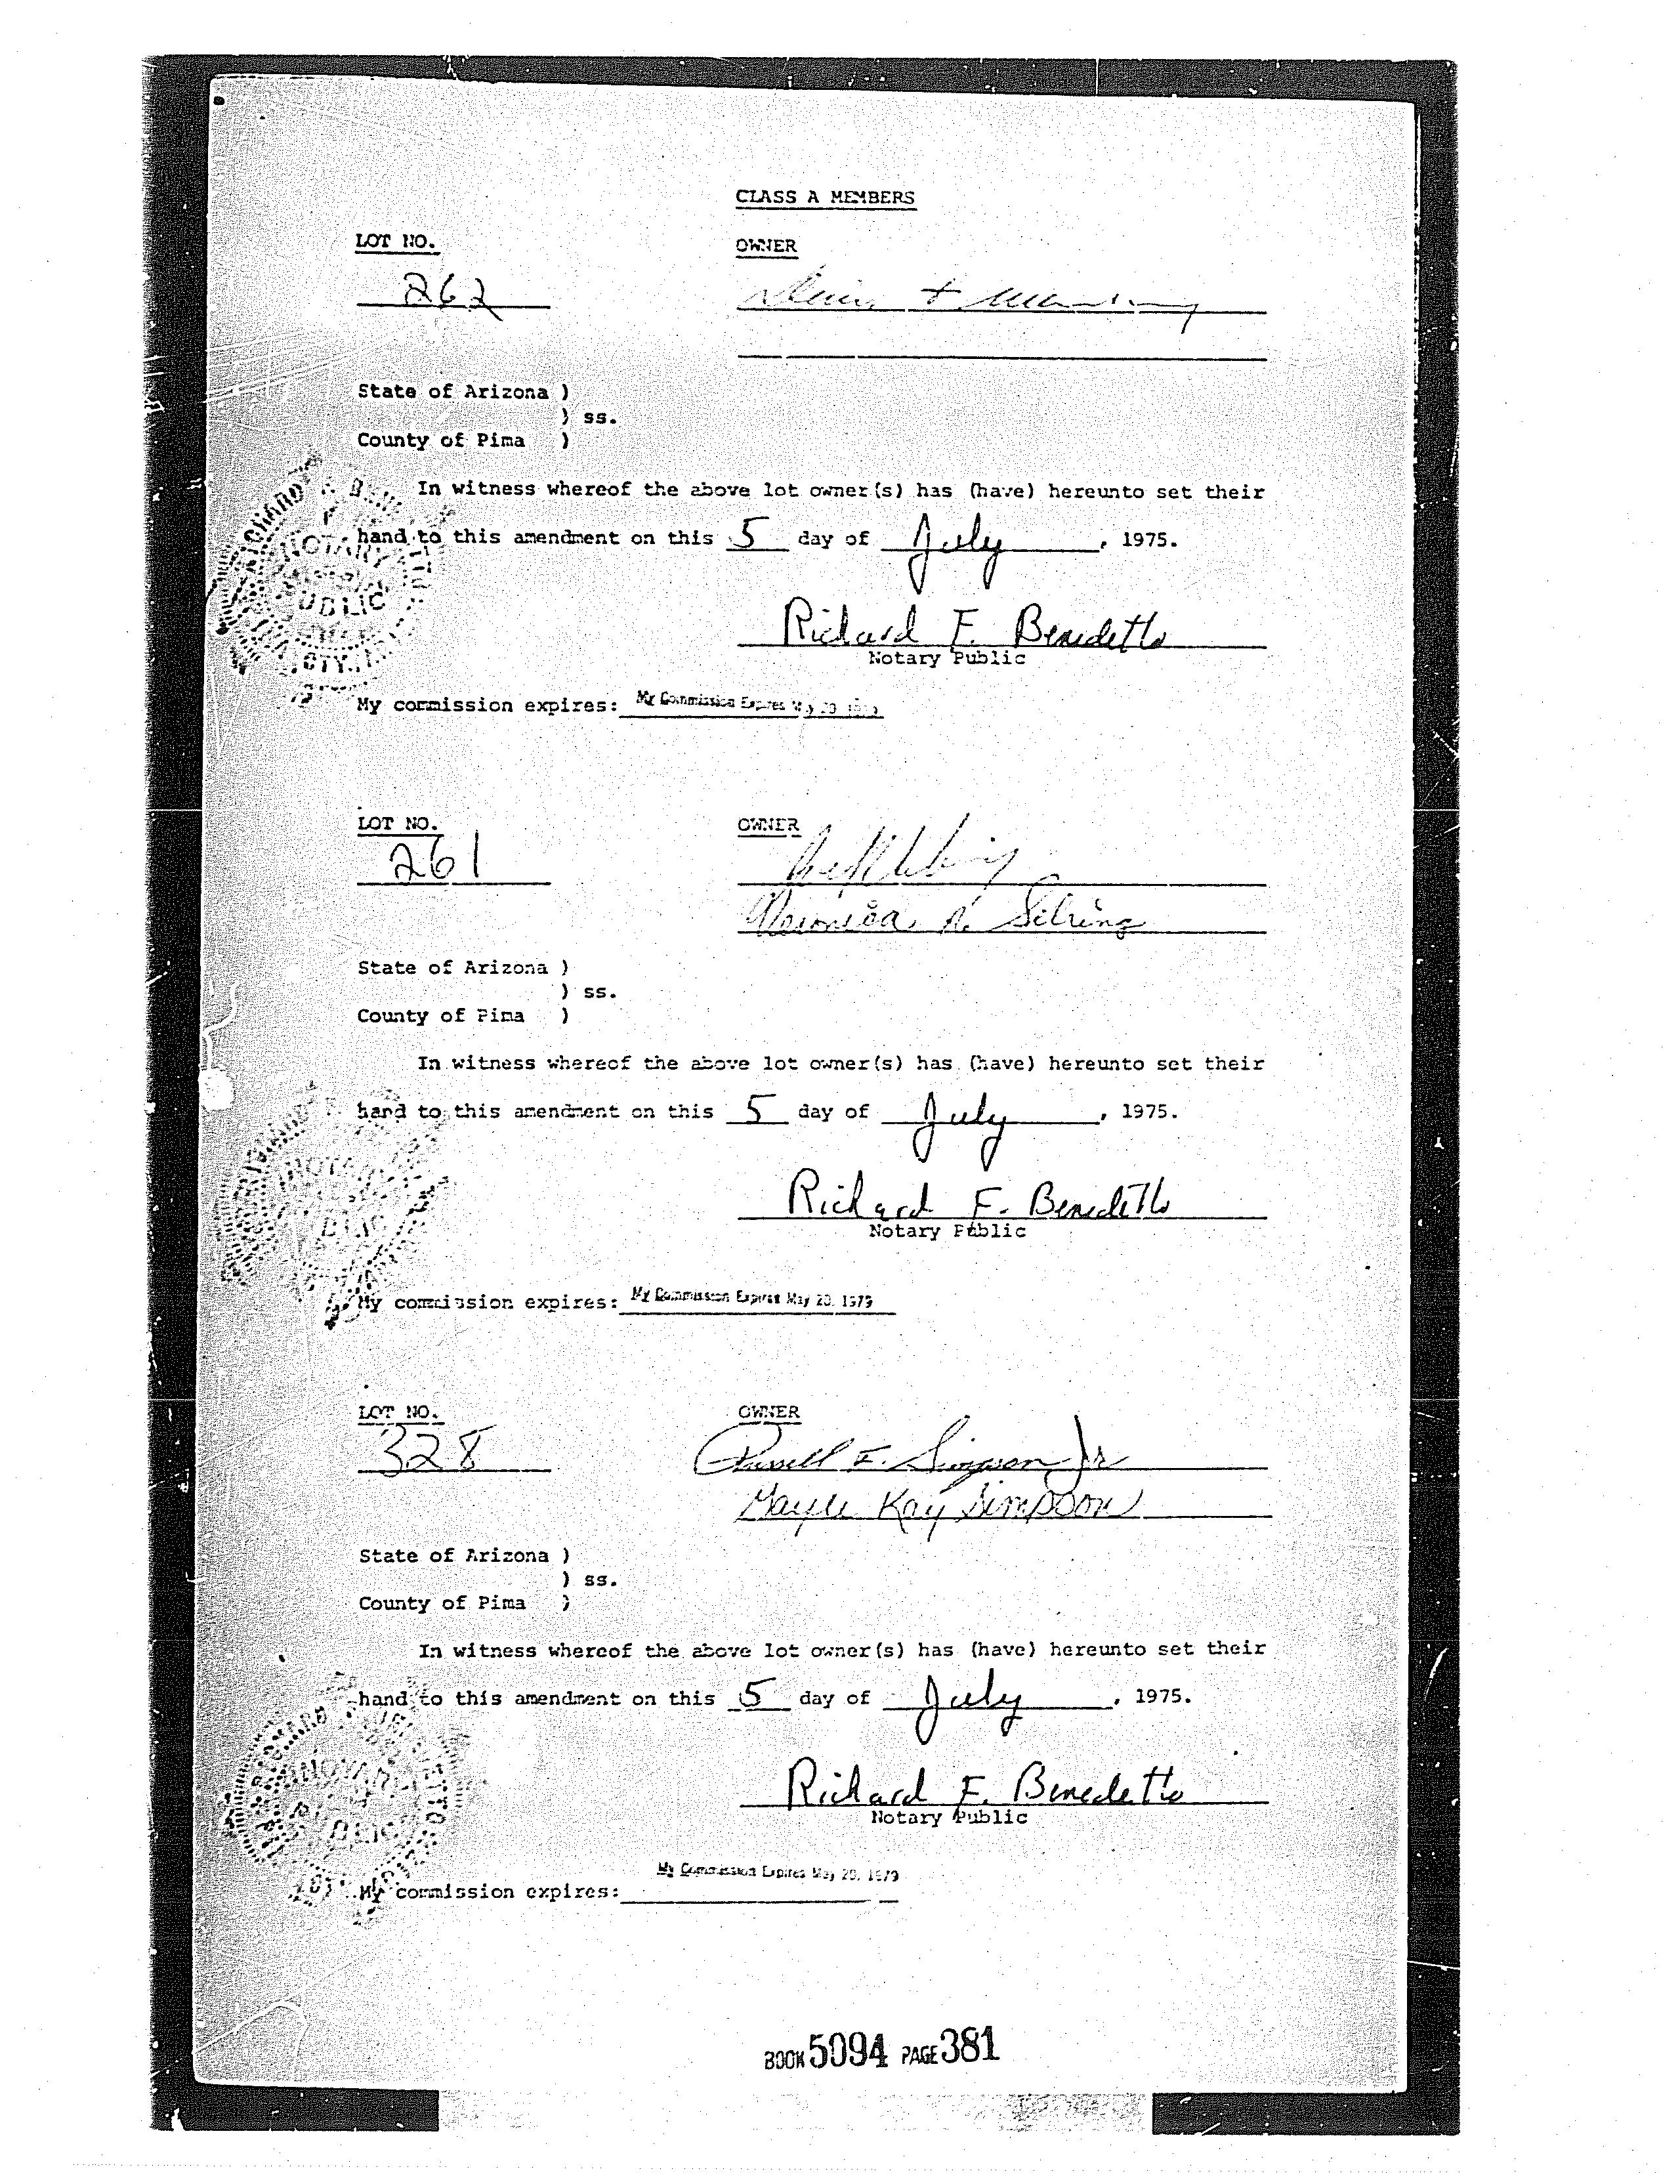 CLASS A MEMBERS
LOT NO. OWNER
262
State of Arizona )
) ss.
County of Pima )
In witness whereof the above lot owner(s) has (have) hereunto set their
hand to this amendment on this 5 day of July, 1975.
Richard F. Benedetto
Notary Public
My commission expires: My Commission Expires May 20
LOT NO. OWNER
261
Veronica R. Sebring
State of Arizona )
) ss.
County of Pima )
In witness whereof the above lot owner(s) has (have) hereunto set their
hand to this amendment on this 5 day of July, 1975.
Richard F. Benedetto
Notary Public
My commission expires: My Commission Expires May 20, 1979
LOT NO. OWNER
328 Russell F. Simpson Jr
Kay Simpson
State of Arizona )
) ss.
County of Pima )
In witness whereof the above lot owner(s) has (have) hereunto set their
hand to this amendment on this 5 day of July, 1975.
Richard F. Benedetto
Notary Public
My Commission Expires May 20, 1979
My commission expires:
BOOK 5094 PAGE 381